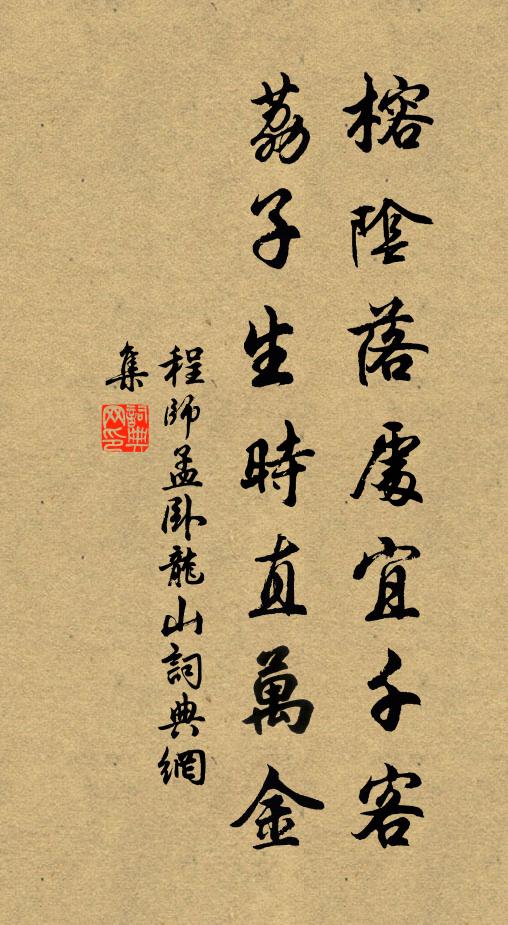 榕陰落處宜千客
荔子生時直萬金
程師孟卧龍山詞典網
集
詞典网印